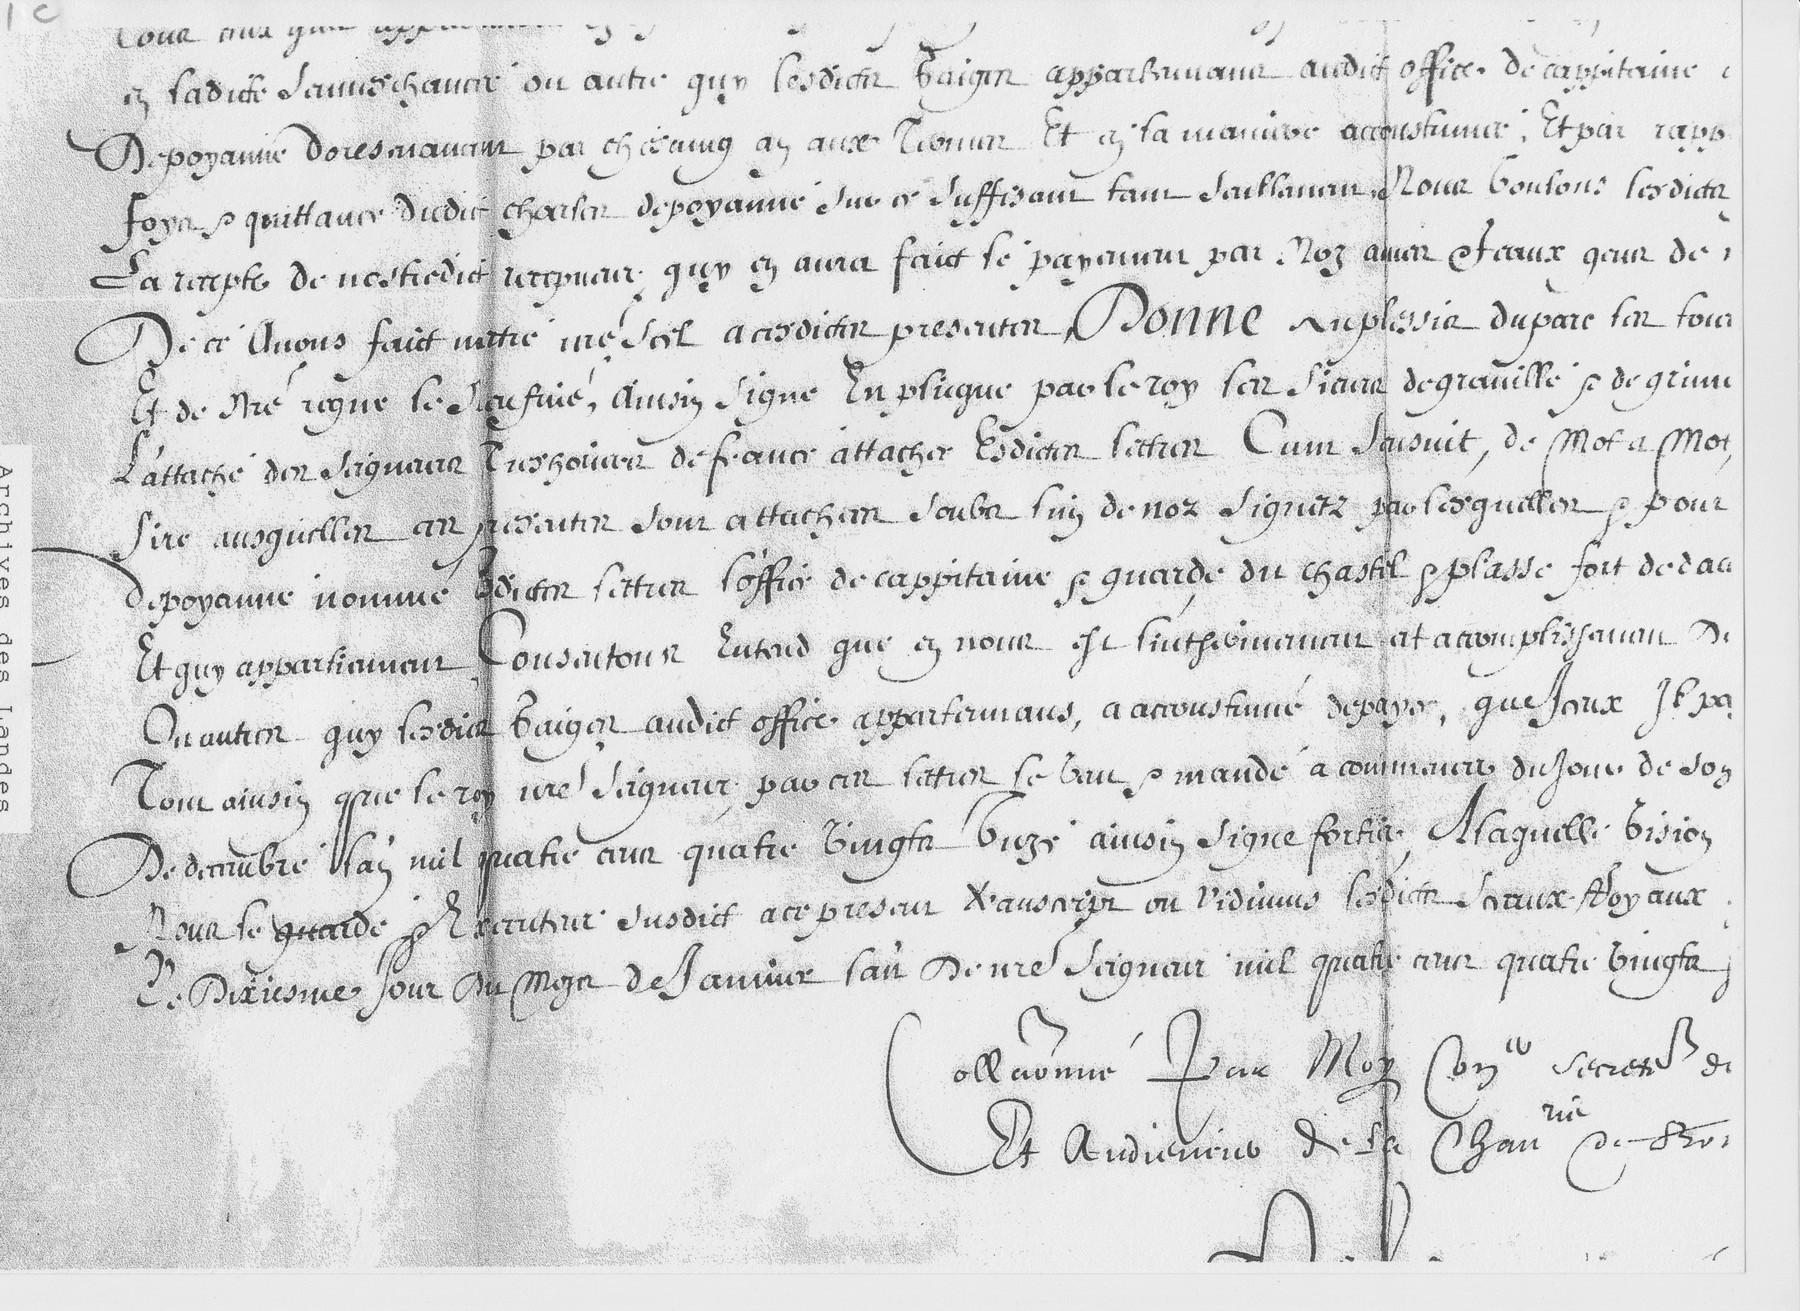 1 C
en ladicte Senneschaucee ou autre quy lesdictz gaiges appartenans audict office de cappitaine
Depoyanne doresnavant par chescung an aux Termes Et en la maniere accoustumee, Et par rapp
foys & quittance dudict charles depoyanne sur ce suffisant tant seullement Nous voulons lesdictz
La recepte de nostredict recepveur quy en aura faict le payement par Noz amez & feaux gens de
De ce Avons faict mettre nre Scel a cesdictes presentes, Donne au plessis du parc les tour
Et de Nre regne le neufine, Ainsin Signe En pliegue par le roy les sieurs de graville & de grim
L'attache des seigneurs Treshoriers de france attachee Esdictes lettres Cum sensuit, de Mot a Mot,
Sire ausquelles ces presentes sont attachees soubz lun de noz Signetz par lesquelles & pour
depoyanne nomme Esdictes lettres l'office de cappitaine & guarde du chastel & plasse fort de dac
Et quy appartiennent Consentons Entend que en nous est linthérinement et accomplissement De
Ou autres quy lesdictz gaiges audict office appartenans, a accoustumé depayer, que Iceux Il pa
Tout ainsin que le roy nre Seigneur par ces lettres le veut & mande a commencer du Jour de son
De decembre lan mil quatre cens quatre vingtz Unze ainsin Signe fortier, A laquelle vision
Nous le guarde & Executeur susdict a ce present Transcript ou vidimus lesdictz Sceaux Royaux
Le Dixiesme Jour Du Moys de Janvier lan De nre Seigneur mil quatre cens quatre vingtz
Collaonné Par Moy Coner Secretre de
Et Audiencier de la Chanrie de Bor
Archives des Landes